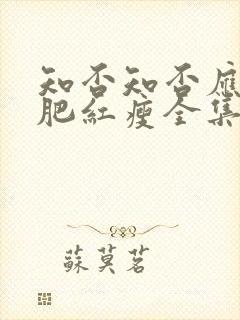 知否知否應
肥紅瘦全集
蘇莫茗